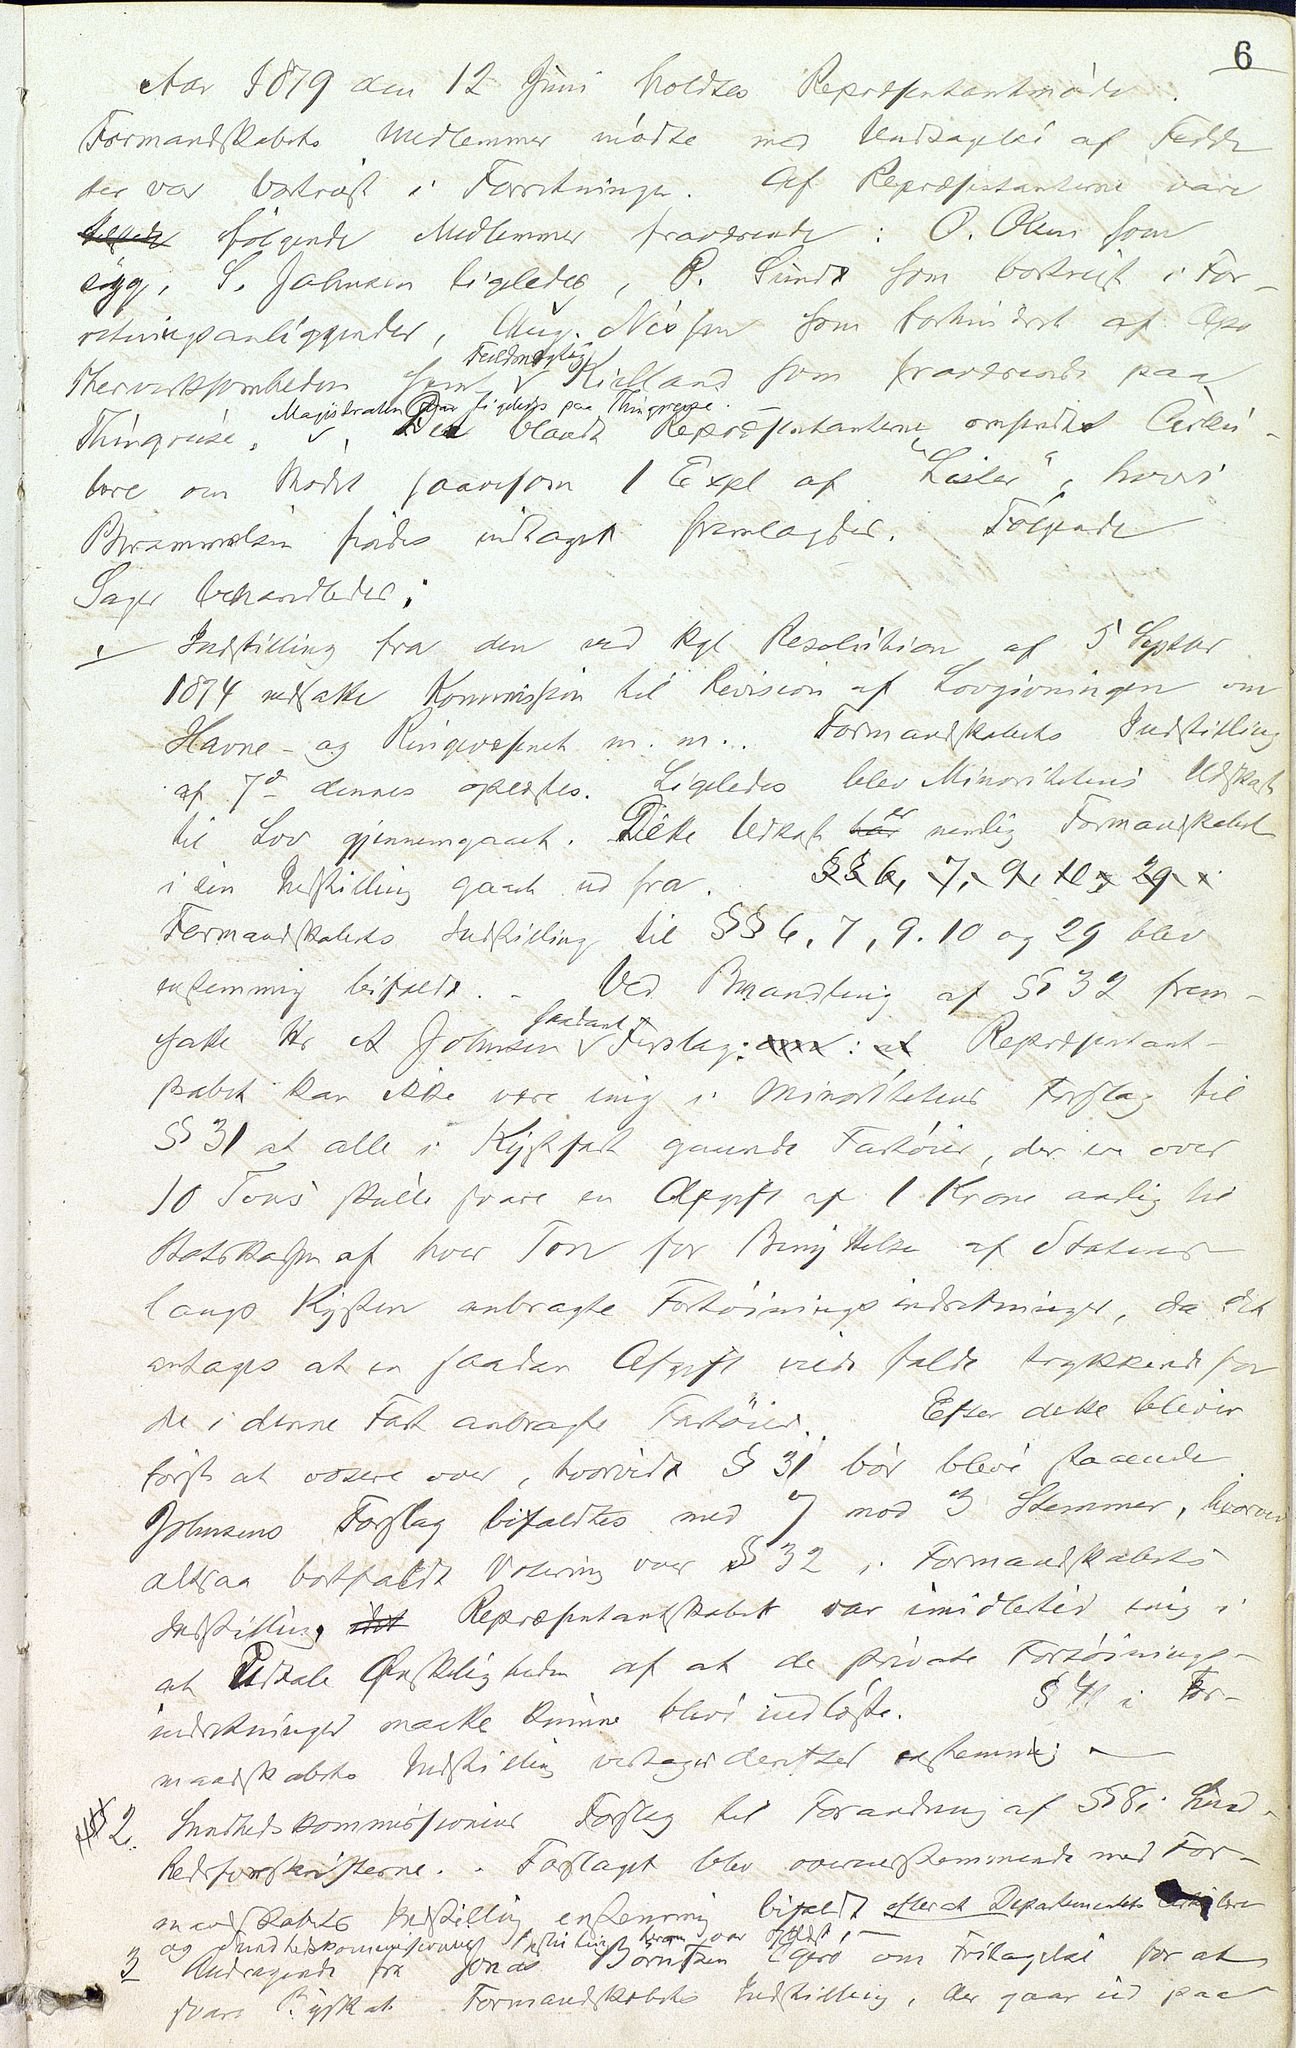 6
Aar 1879 den 12 Juni holdtes Repræsentantmøde.
Formandskabets Medlemmer mødte med Undtagelse af Fedde
der var bortreist i Forretninger. Af Repræsentanterne vare
følgende Medlemmer fraværende: O. Olsen som
syg, S. Johnsen ligeledes, P. Sundt som bortreist i For-
retningsanliggender, Aug. Nissen som forhindret af Apo
thervirksomheden samt Fuldmægtig Kielland som fraværende paa
Thingreise. Magistraten var ligeledes paa Thingreise.
Den blandt Repræsentanterne omsendte Cirku-
lære om Mødet saavelsom 1 Expl af "Lister", hvori
Berammelsen findes indtaget fremlagdes. Følgende
Sager behandledes:
1 Indstilling fra den ved kgl Resolution af 5 Septbr
1874 nedsatte Kommission til Revision af Lovgivningen om
Havne- og Ringevæsenet m. m.. Formandskabets Indstilling
af 7de dennes oplæstes. Ligeledes blev Minoritetens Udkast
til Lov gjennemgaaet. Dette Udkast er nemlig Formandskabet
i sin Indstilling gaaet ud fra. §§ 6, 7, 9, 10, 29
Formandskabets Indstilling til §§ 6, 7, 9. 10 og 29 blev
enstemmig bifaldt. - Ved Behandling af § 32 frem-
satte Hr A Johnsen saadant Forslag: Repræsentant-
skabet kan ikke være enig i Minoritetens Forslag til
§ 31 at alle i Kystfart gaaende Fartøier, der ere over
10 Tons skulle svare en Afgift af 1 Krone aarlig til
Statskassen af hver Ton for Benyttelse af Statens
langs Kysten anbragte Fortøiningsindretninger, da det
antages at en saadan Afgift vilde falde trykkende for
de i denne Fart anbragte Fartøier. Efter dette bliver
først at votere over, hvorvidt § 31 bør blive staaende
Johnsens Forslag bifaldtes med 7 mod 3 Stemmer, hvorved
altsaa bortfaldt Votering over § 32 i Formandskabets
Indstilling. Repræsentantskabet var imidlertid enig i
at udtale Ønskeligheden af at de private Fortøinings-
indretninger maatte kunne blive indløste. § 41 i For-
mandskabets Indstilling vedtages derefter enstemmig
2. Sundhedskommissionens Forslag til Forandring af § 8 i Sund-
hedsforskrifterne. Forslaget blev overensstemmende med For-
mandskabets Indstilling enstemmig bifaldt efterat Departementets Cirkulære
og Sundhedskommissionens herom var oplæst. -
3 Andragende fra Jonas Børntsen Egerø om Fritagelse for at
svare Byskat. Formandskabets Indstilling, der gaar ud paa